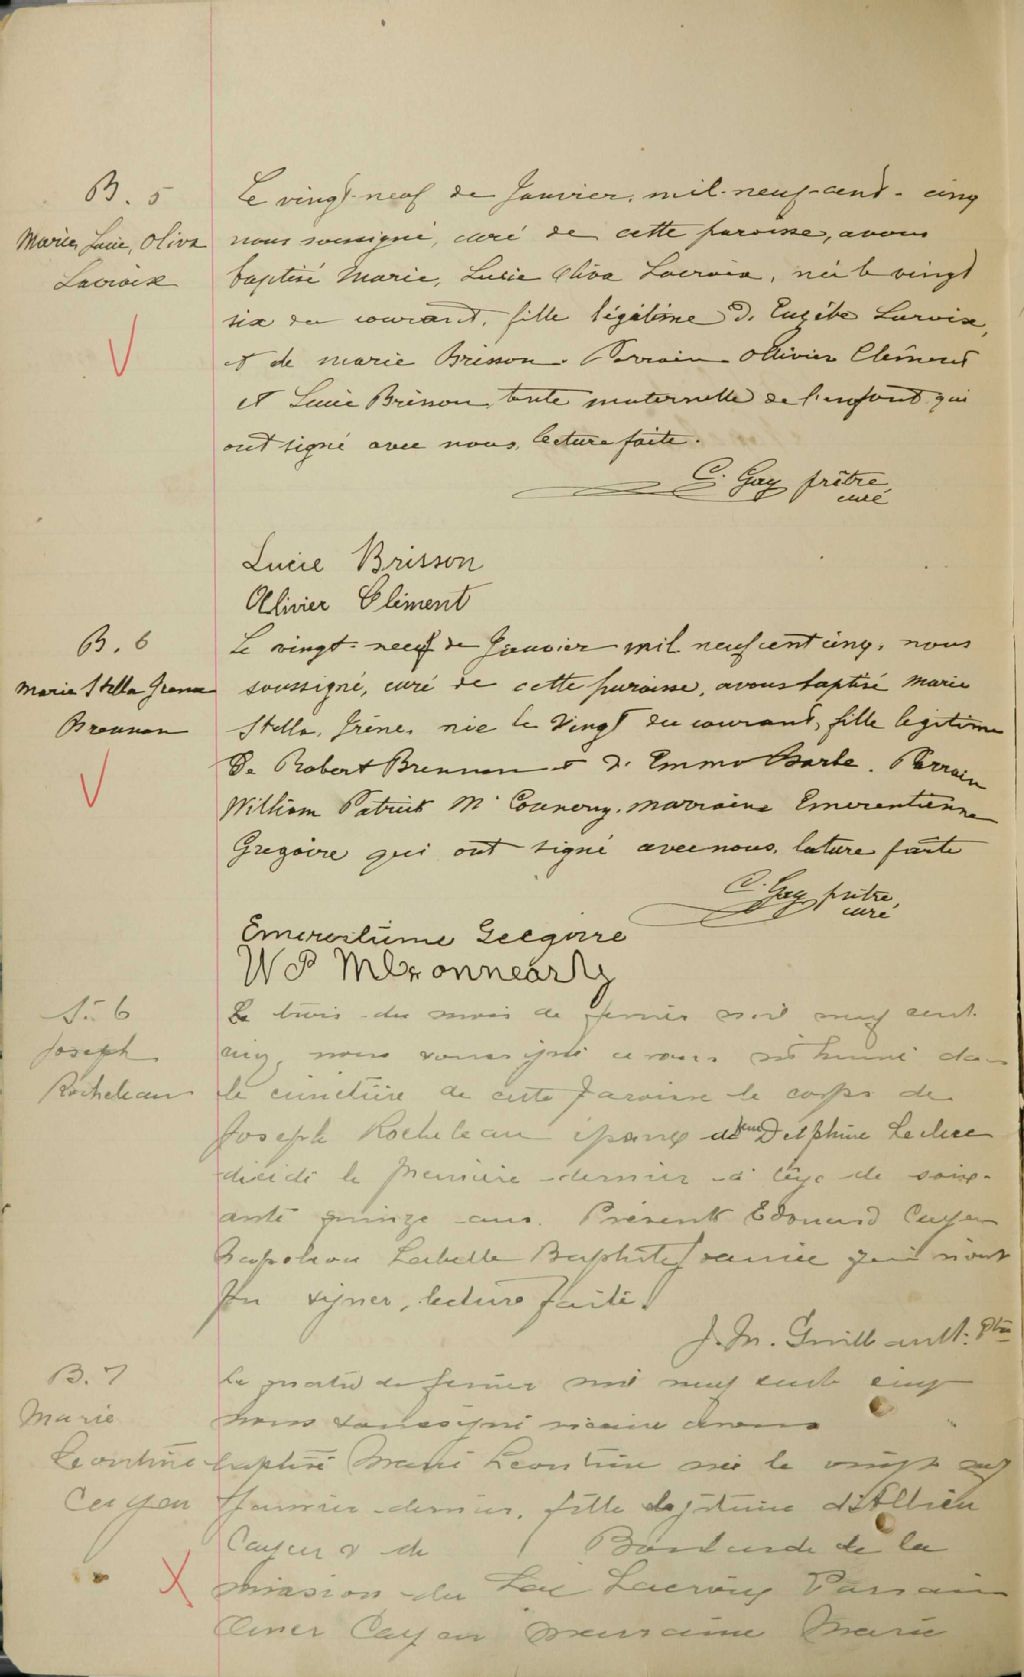 B. 5
Marie, Lucie, Oliva
Lacroix
Le vingt-neuf de Janvier, mil-neuf-cent-cinq
nous soussigné, curé de cette paroisse, avons
baptisé Marie, Lucie Oliva Lacroix, née le vingt
six du courant, fille légitime d. Eusèbe Lacroix,
et de Marie Brisson. Parrain Ollivier Clément
et Lucie Brisson, tante maternelle de l'enfant qui
ont signé avec nous, lecture faite.
C. Gay prêtre,
curé
Lucie Brisson
Olivier Clément
B. 6
Marie Stella Irene
Brennan
Le vingt-neuf de Janvier mil neuf cent cinq, nous
soussigné, curé de cette paroisse, avons baptisé Marie
Stella, Irène, née le vingt du courant, fille legitime
De Robert Brennan et d. Emma Barbe. Parrain
William Patrick Mc Connery, marraine Emerentienne
Gregoire qui ont signé avec nous, lecture faite
C. Gay prêtre,
curé
Gregoire
W P
S. 6
Joseph
Rocheleau
Le trois du mois de fevrier mil neuf cent
cinq, nous soussigné avons inhumé dans
le cimetière de cette paroisse le corps de
Joseph Rocheleau époux de feue Delphine Leclerc
décédé le premier dernier à l'âge de soix-
ante quinze ans. Présents Edouard Cayen
Napoleon Labelle Baptiste qui n'ont
pu signer, lecture faite.
J. M. Guillault. Ptre
B. 7
Marie
Leontine
Cayen
Le quatre de fevrier mil neuf cent cinq
nous soussigné vicaire avons
baptisé Marie Leontine née le vingt
Janvier dernier, fille legitime
Cayen & de de la
mission du Lac Parrain
Omer Cayen marraine Marie